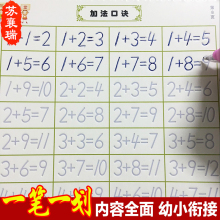 苏襄瑞
加法口诀
1+1=2 1+2=3 1+3=4 1+4=5
1+5=6 1+6=7 1+7=8 1+8=
1+9=10 2+2=4 2+3=5 2+4=6
2+5=7 2+6=8 2+7=9 2+8=10
2+9=11 3+3=6 3+4=7 3+5=8
3+6=9 3+7=10
一笔一划
内容全面 幼小衔接